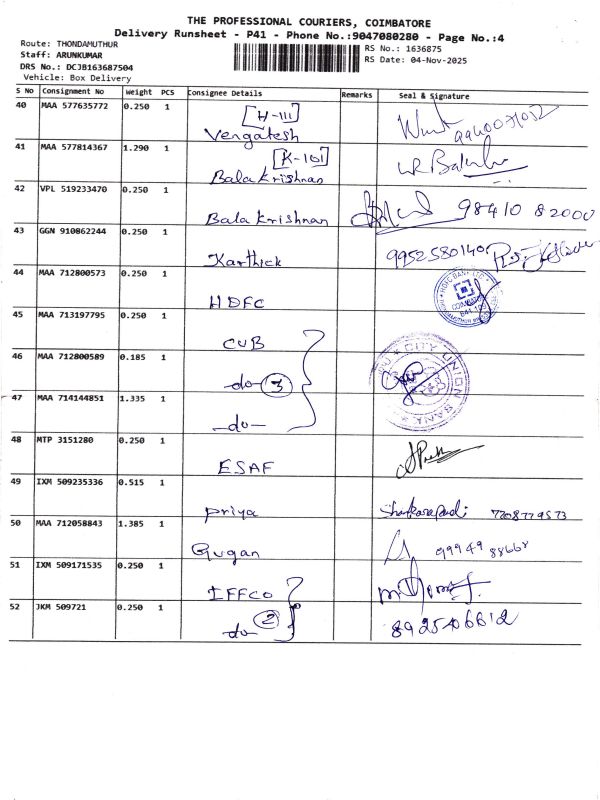 THE PROFESSIONAL COURIERS, COIMBATORE
Delivery Runsheet - P41 - Phone No.:9047080280 - Page No.:4
Route: THONDAMUTHUR
Staff: ARUNKUMAR
DRS No.: DCJB163687504
Vehicle: Box Delivery
RS No.: 1636875
RS Date: 04-Nov-2025
S No Consignment No Weight PCS Consignee Details Remarks Seal & Signature
40 MAA 577635772 0.250 1 [H-111]
Vengatesh
41 MAA 577814367 1.290 1 [K-101]
Bala Krishnan
42 VPL 519233470 0.250 1
Bala Krishnan 98410 82000
43 GGN 910862244 0.250 1
Karthick 9952580140
44 MAA 712800573 0.250 1
HDFC
45 MAA 713197795 0.250 1
CUB
46 MAA 712800589 0.185 1
-do- 3 CITY UNION BANK
47 MAA 714144851 1.335 1
-do-
48 MTP 3151280 0.250 1
ESAF
49 IXM 509235336 0.515 1
Priya 7708779573
50 MAA 712058843 1.385 1
Gugan 99949 88668
51 IXM 509171535 0.250 1
IFFCO
52 JKM 509721 0.250 1
-do- 2 8925406612